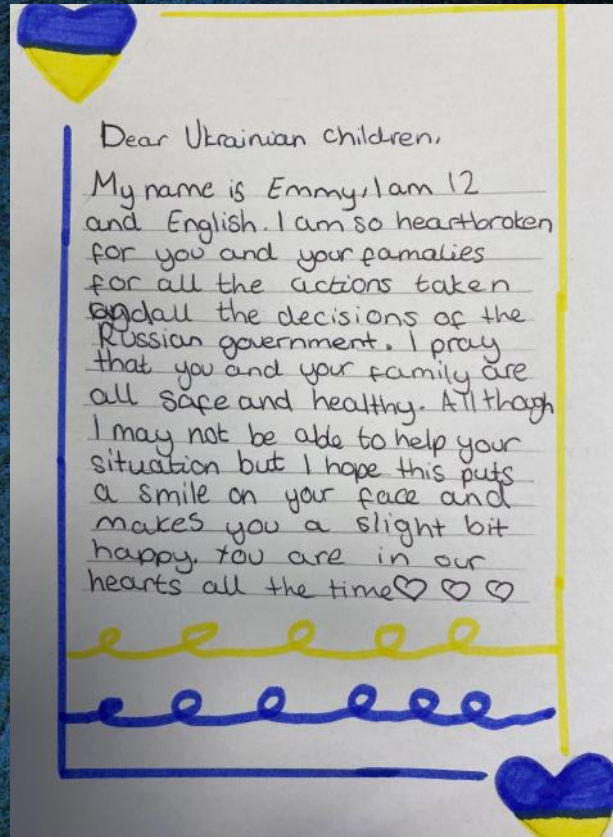 Dear Ukrainian children,
My name is Emmy, I am 12
and English. I am so heartbroken
for you and your famalies
for all the actions taken
and all the decisions of the
Russian government. I pray
that you and your family are
all safe and healthy. Allthough
I may not be able to help your
situation but I hope this puts
a smile on your face and
makes you a slight bit
happy. You are in our
hearts all the time♡ ♡ ♡